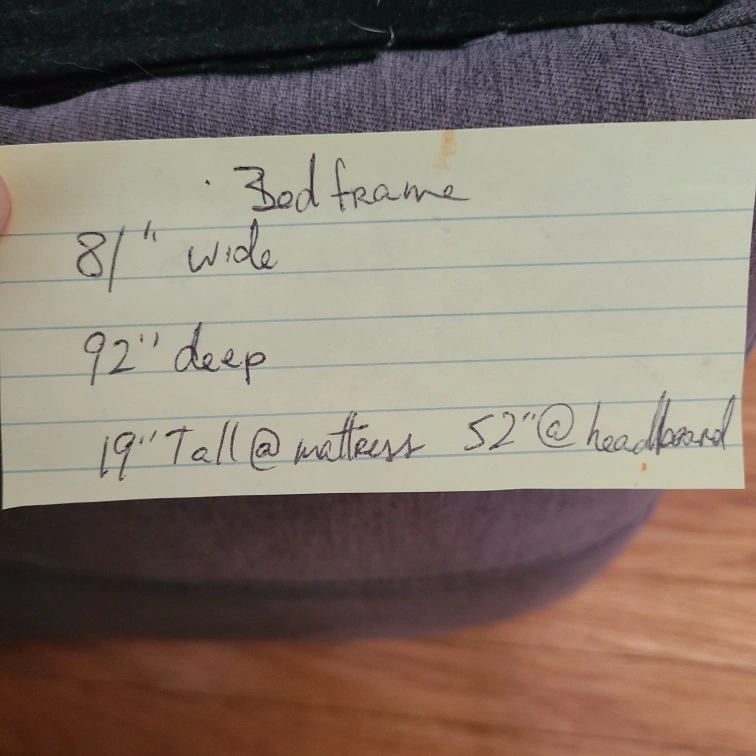 Bed frame
81" wide
92" deep
19" Tall @ mattress 52" @ headboard